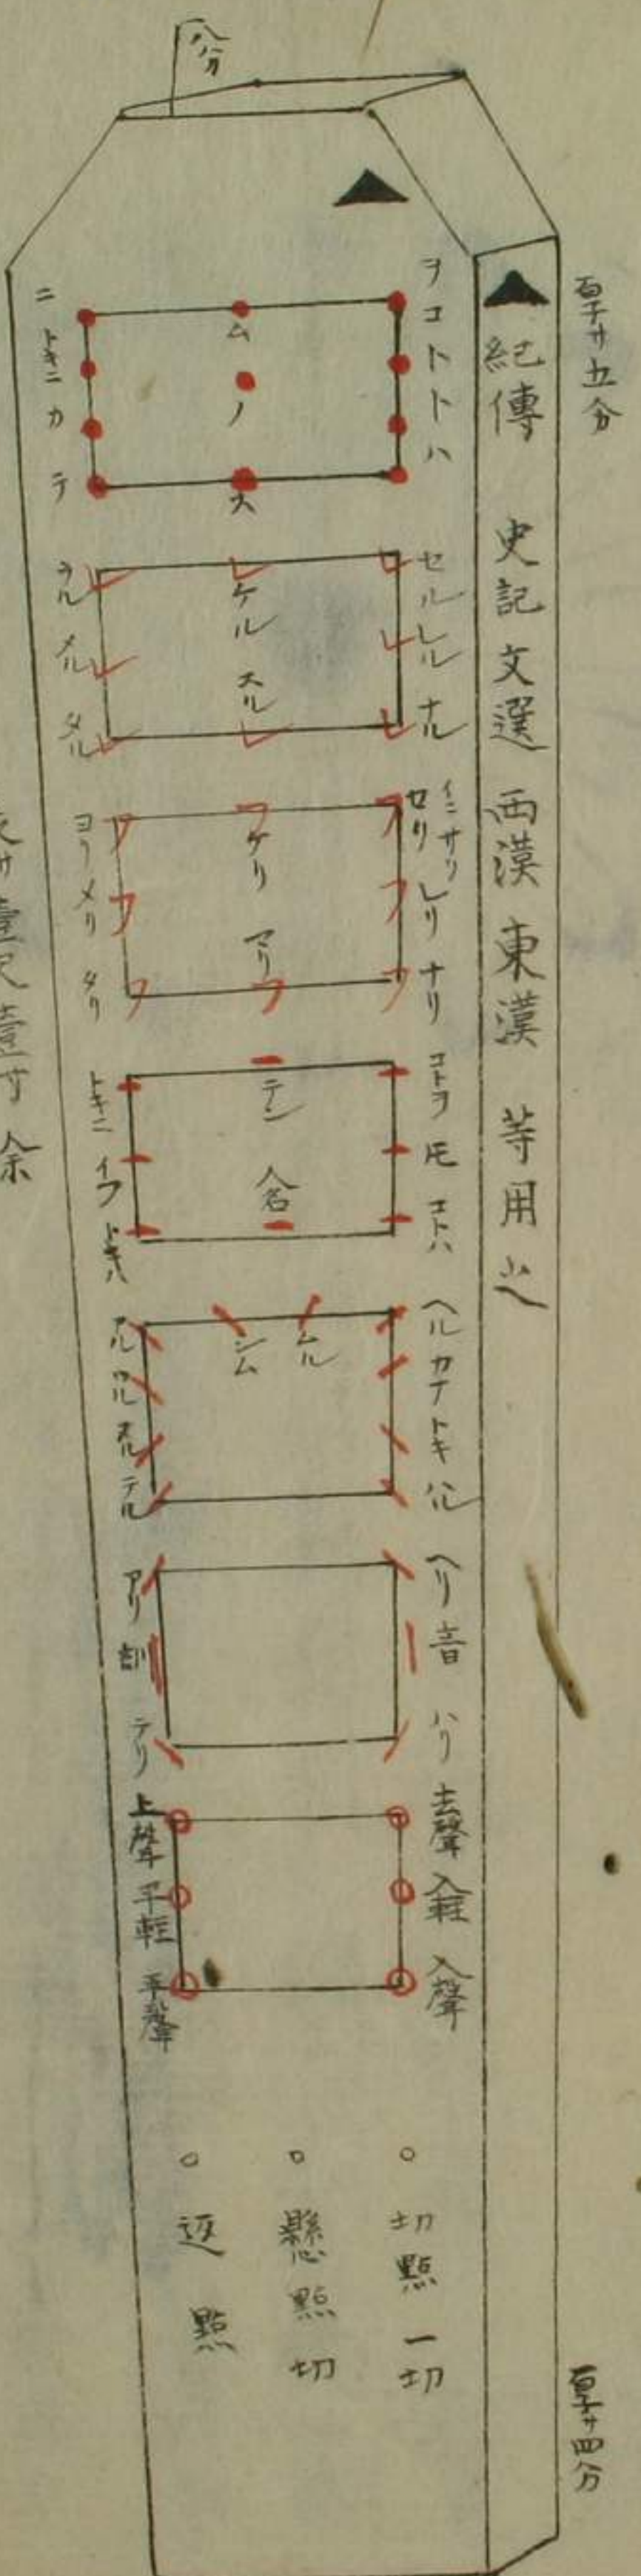 八分
五分
紀傳 史記 文選 西漢 東漢 等用之
ヲ コト ト ハ
ム ノ ス
ニ トキニ カ テ
セル レル ナル
ケル スル
ヲル メル タル
イニサリ
セリ レリ ナリ
ケリ アリ
ヨリ メリ タリ
コトヲ コトハ
テン 人名
トキニ イフ トキハ
ヘル カナ トキ ハル
ムル
シム
テル
ヘリ 音 ハリ
アリ 訓 テリ
去聲 入軽 入聲
上聲 平軽 平聲
切點 一切
懸點 切
返點
四分
壹尺壹寸余